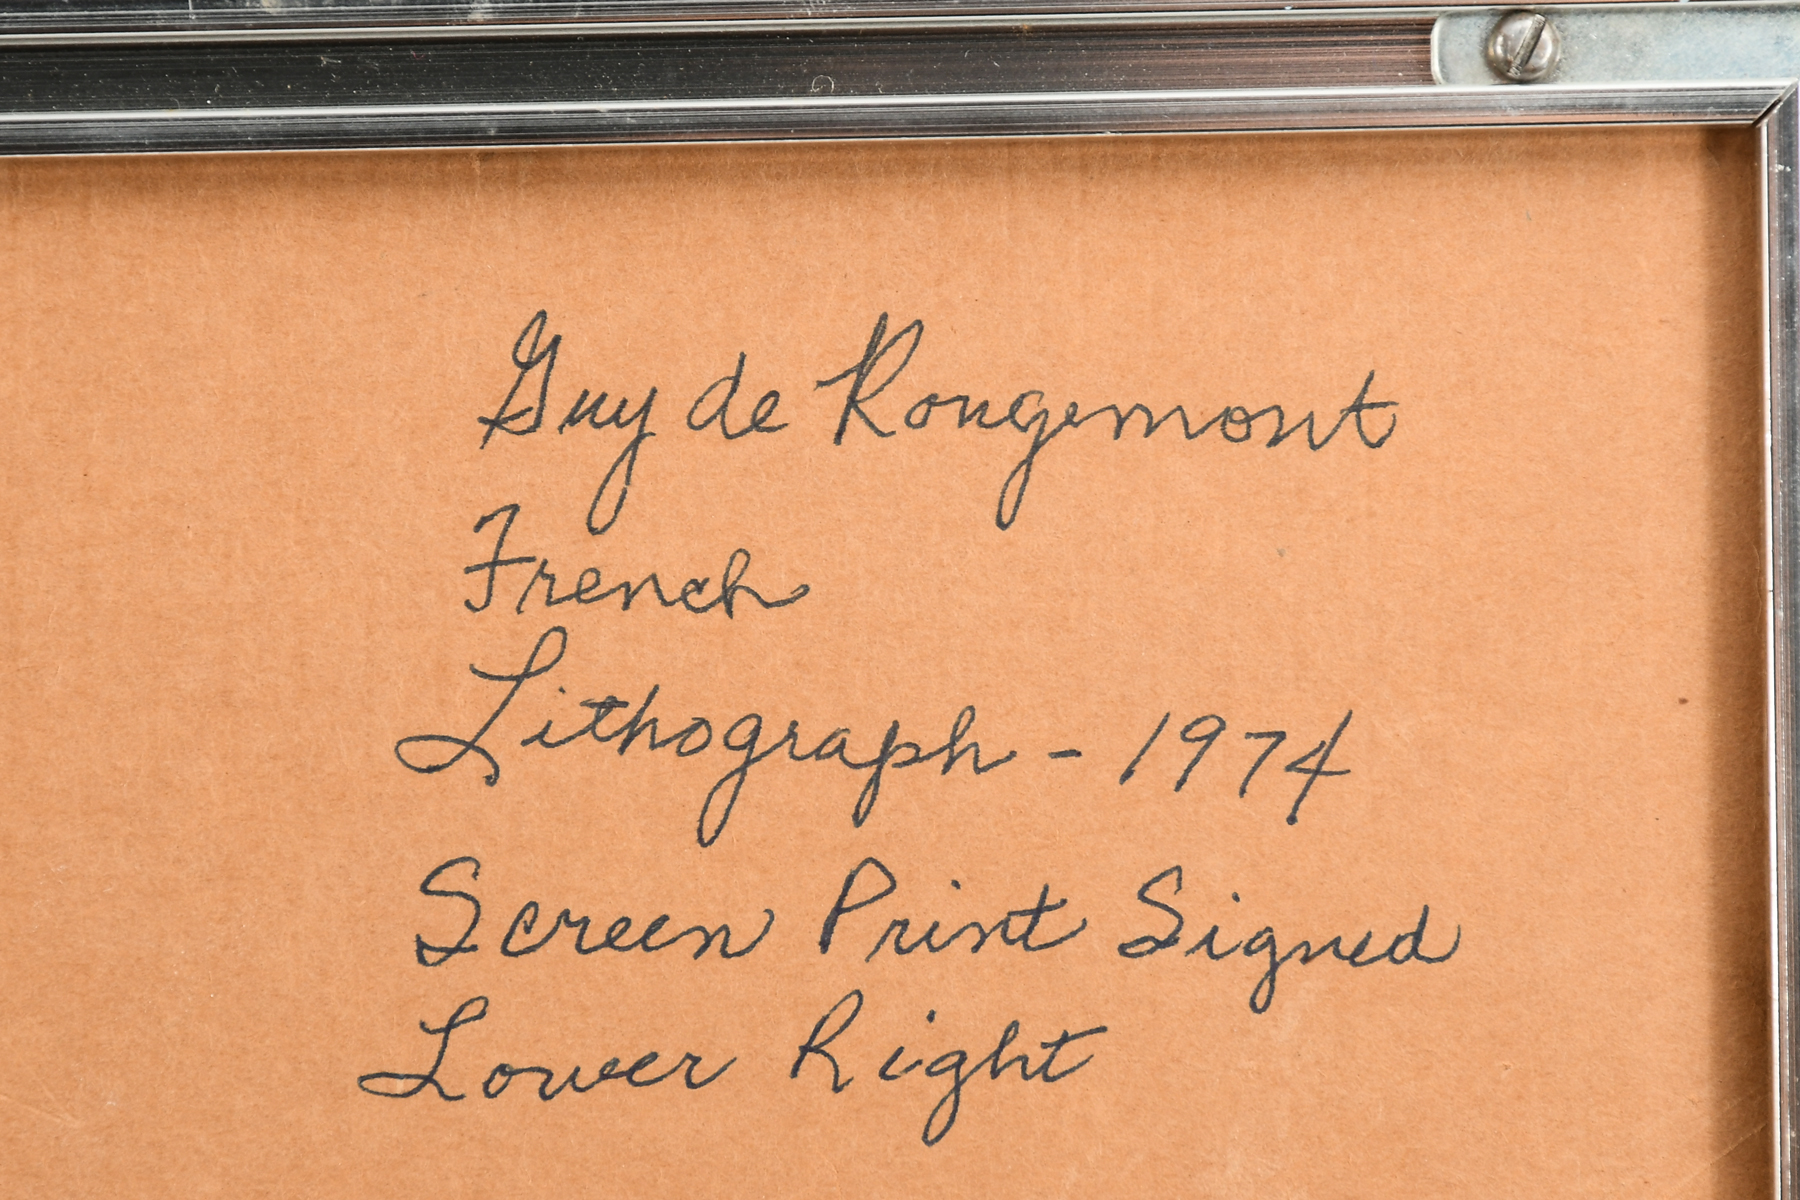 Guy de Rougemont
French
Lithograph - 1974
Screen Print Signed
Lower Right